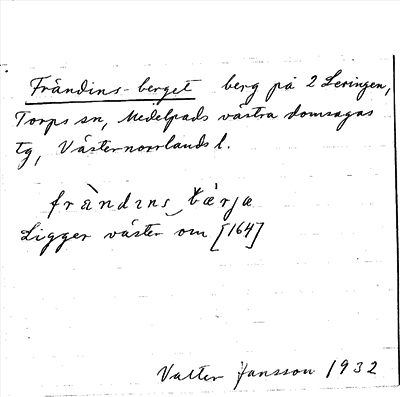 Frändins-berget berg på 2 Leringen,
Torps sn, Medelpads västra domsagas
tg, Västernorrlands l.
frä̀ndɪns‿bærja
Ligger väster om [164]
Valter Jansson 1932